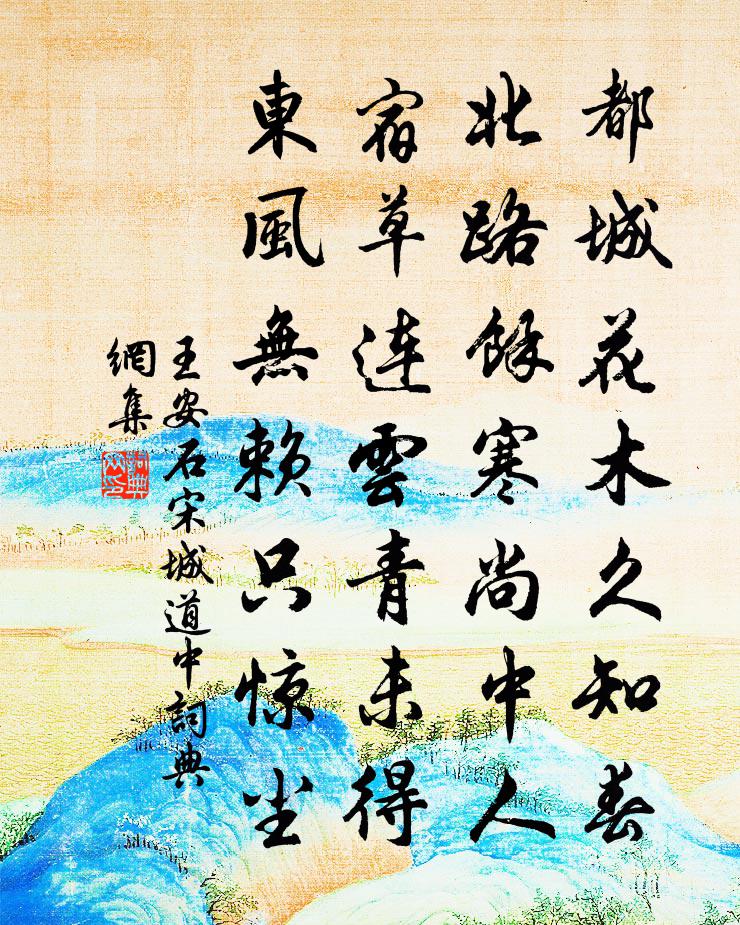 都城花木久知春
北路餘寒尚中人
宿草連雲青未得
東風無賴只惊尘
王安石宋城道中詞典
網集